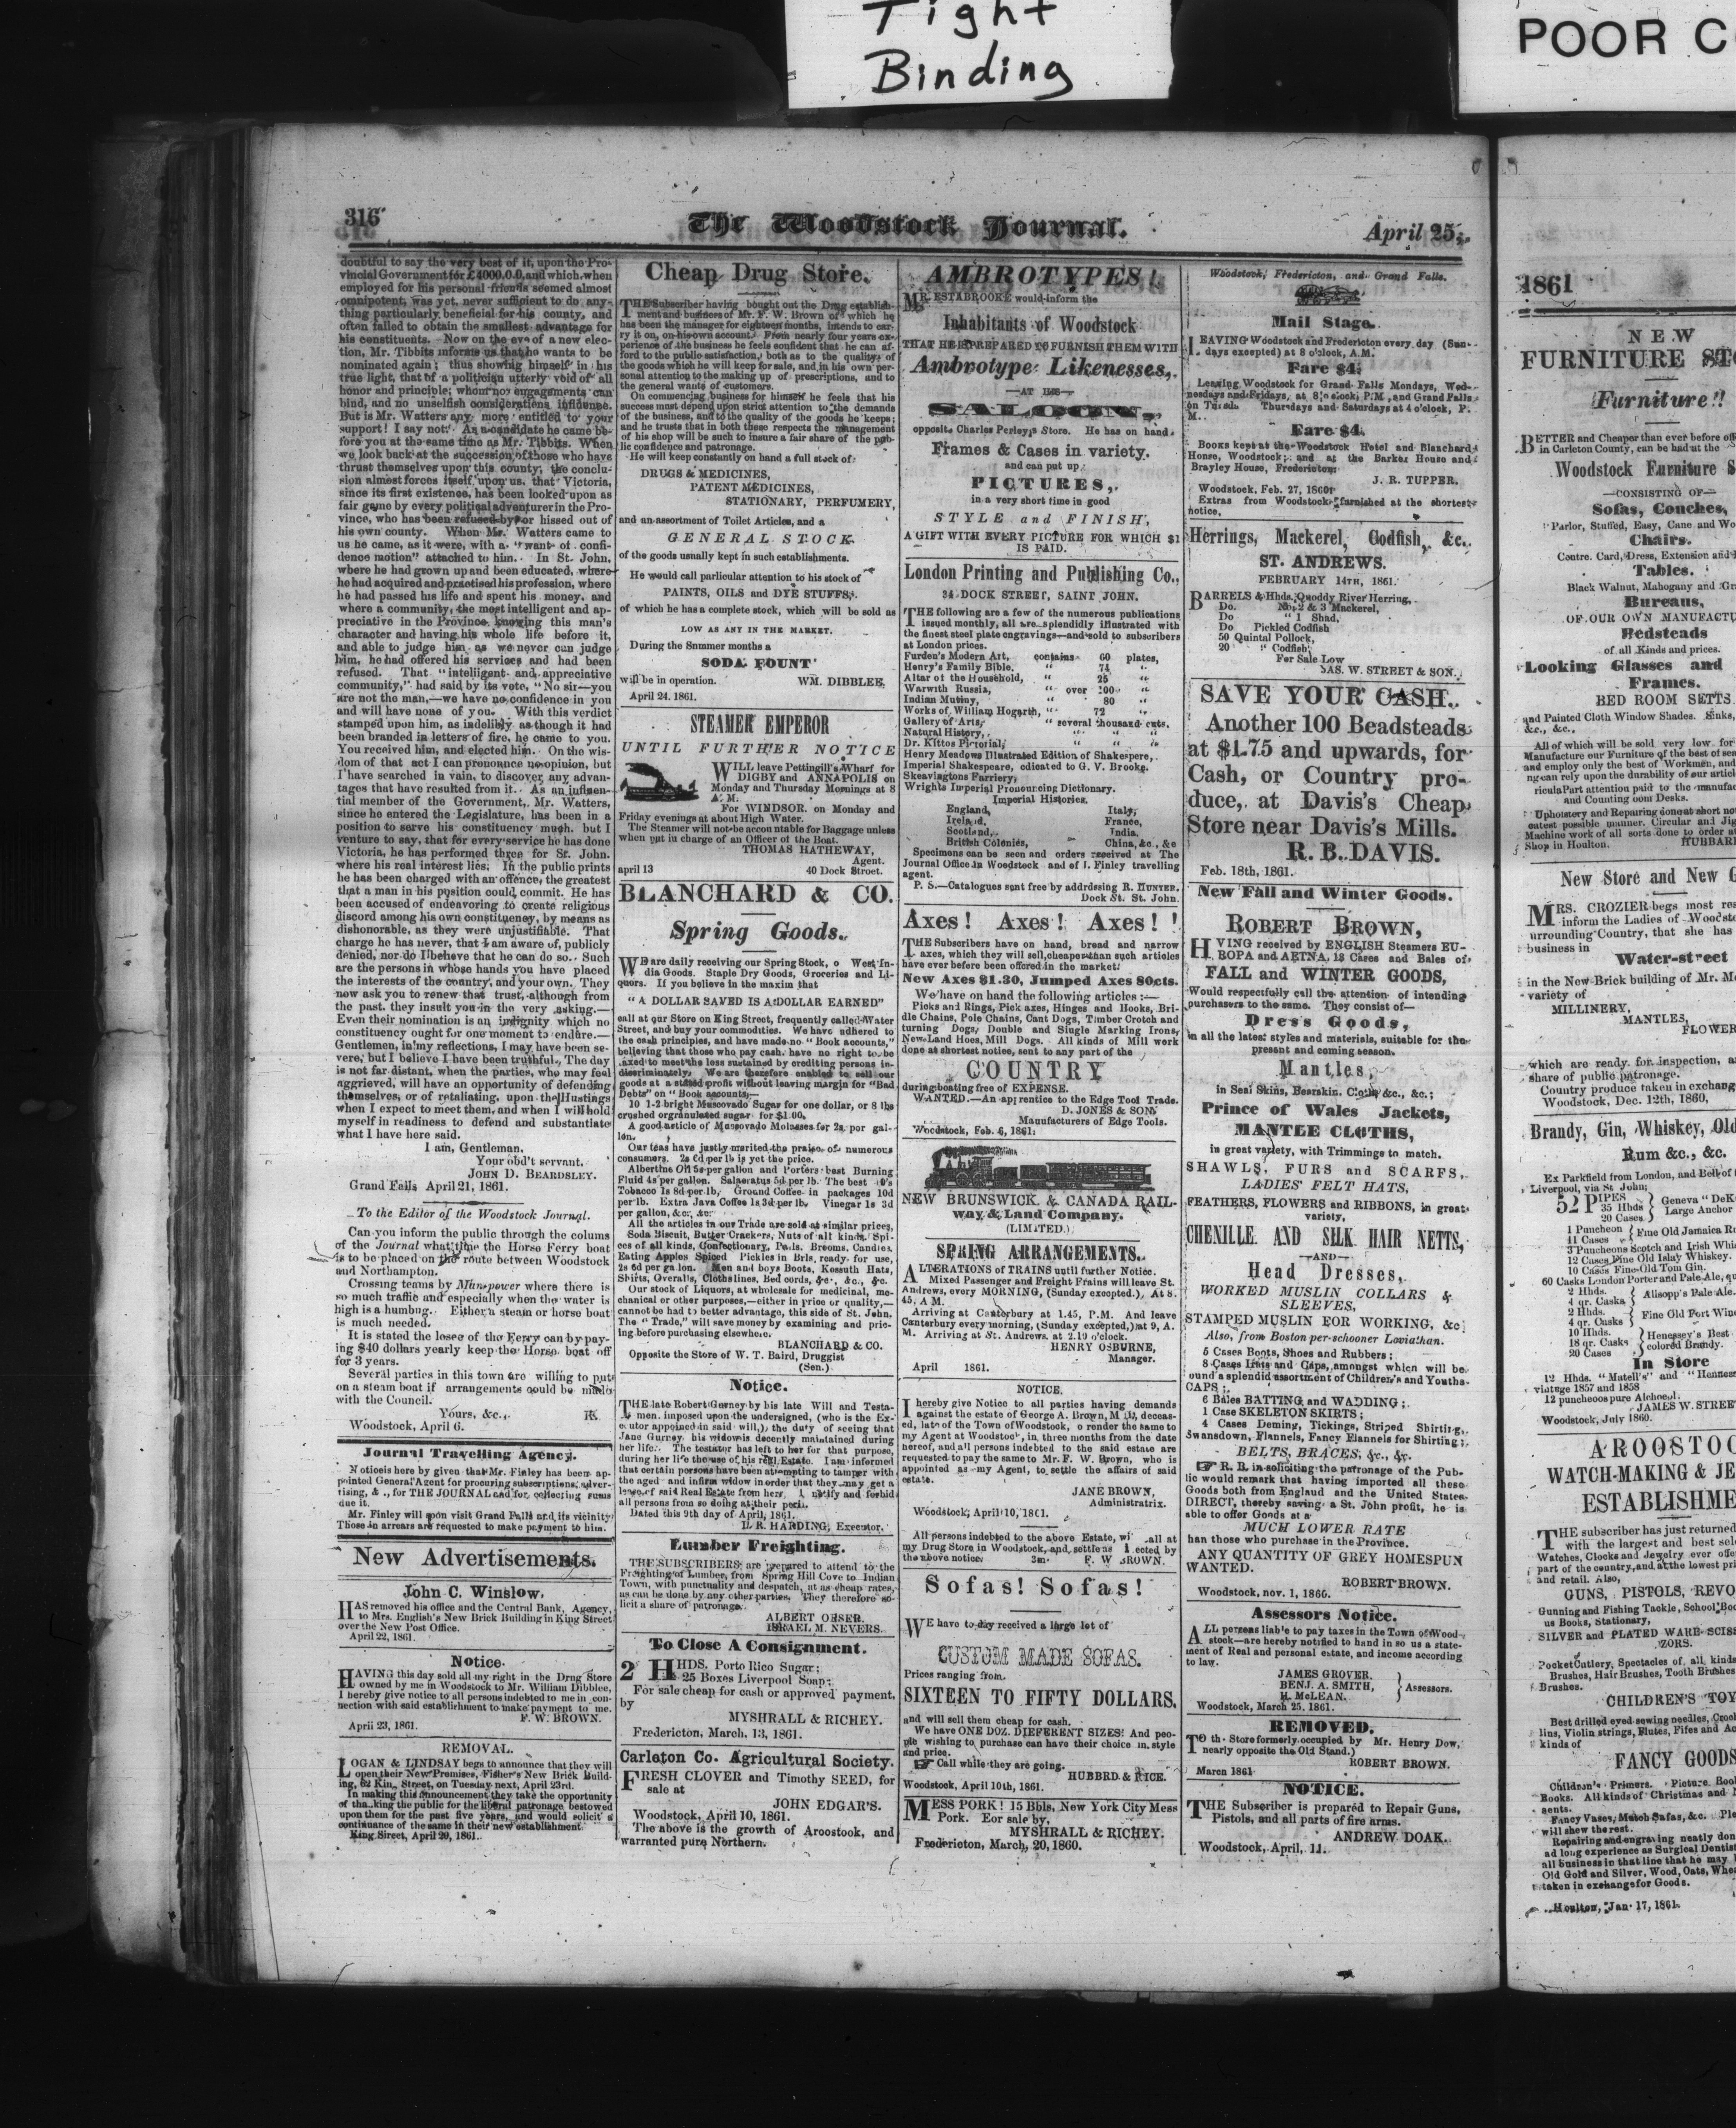 Tight
Binding
POOR C
316
The Woodstock Journal.
April 25,
doubtful to say the very best of it, upon the Pro-
vincial Government for £4000.0.0, and which when
employed for his personal friends seemed almost
omnipotent, was yet, never suffisient to do any-
thing particularly beneficial for his county, and
often failed to obtain the smallest advantage for
his constituents. Now on the eve of a new elec-
tion, Mr. Tibbits informs us that he wants to be
nominated again; thus showing himself in his
true light, that of a politician utterly void of all
honor and principle; whom no engagements can
bind, and no unselfish considerations influence.
But is Mr. Watters any more entitled to your
support! I say not. As a candidate he came be-
fore you at the same time as Mr. Tibbits. When
we look back at the succession of those who have
thrust themselves upon this county, the conclu-
sion almost forces itself upon us, that Victoria,
since its first existence, has been looked upon as
fair game by every political adventurer in the Pro-
vince, who has been refused by or hissed out of
his own county. When Mr. Watters came to
us he came, as it were, with a "want of confi-
dence motion" attached to him. In St. John,
where he had grown up and been educated, where
he had acquired and practised his profession, where
he had passed his life and spent his money, and
where a community, the most intelligent and ap-
preciative in the Province, knowing this man's
character and having his whole life before it,
and able to judge him as we never can judge
him, he had offered his services and had been
refused. That "intelligent and appreciative
community," had said by its vote, "No sir—you
are not the man,—we have no confidence in you
and will have none of you. With this verdict
stamped upon him, as indelibly as though it had
been branded in letters of fire, he came to you.
You received him, and elected him. On the wis-
dom of that act I can pronounce no opinion, but
I have searched in vain, to discover any advan-
tages that have resulted from it. As an influen-
tial member of the Government, Mr. Watters,
since he entered the Legislature, has been in a
position to serve his constituency much, but I
venture to say, that for every service he has done
Victoria, he has performed three for St. John.
where his real interest lies: In the public prints
he has been charged with an offence, the greatest
that a man in his position could commit. He has
been accused of endeavoring to create religious
discord among his own constituency, by means as
dishonorable, as they were unjustifiable. That
charge he has never, that I am aware of, publicly
denied, nor do I believe that he can do so. Such
are the persons in whose hands you have placed
the interests of the country, and your own. They
now ask you to renew that trust, although from
the past, they insult you in the very asking.—
Even their nomination is an indignity which no
constituency ought for one moment to endure.—
Gentlemen, in my reflections, I may have been se-
vere, but I believe I have been truthful. The day
is not far distant, when the parties, who may feel
aggrieved, will have an opportunity of defending
themselves, or of retaliating, upon the Hustings
when I expect to meet them, and when I will hold
myself in readiness to defend and substantiate
what I have here said.
I am, Gentleman,
Your obd't servant,
JOHN D. BEARDSLEY.
Grand Falls April 21, 1861.
To the Editor of the Woodstock Journal.
Can you inform the public through the colums
of the Journal what time the Horse Ferry boat
is to be placed on the route between Woodstock
and Northampton.
Crossing teams by Man-power where there is
so much traffic and especially when the water is
high is a humbug. Either a steam or horse boat
is much needed.
It is stated the lesee of the Ferry can by pay-
ing $40 dollars yearly keep the Horse boat off
for 3 years.
Several parties in this town are willing to put
on a steam boat if arrangements could be made
with the Council.
Yours, &c.,
Woodstock, April 6.
Journal Travelling Agency.
Notice is here by given that Mr. Finley has been ap-
pointed General Agent for procuring subscriptions, adver-
rising, & ., for THE JOURNAL and for collecting sums
due it.
Mr. Finley will soon visit Grand Falls and its vicinity
Those in arrears are requested to make payment to him.
New Advertisements.
John C. Winslow,
HAS removed his office and the Central Bank, Agency,
to Mrs. English's New Brick Building in King Street
over the New Post Office.
April 22, 1861.
Notice.
HAVING this day sold all my right in the Drug Store
owned by me in Woodstock to Mr. William Dibblee,
I hereby give notice to all persons indebted to me in con-
nection with said establishment to make payment to me.
F. W. BROWN.
April 23, 1861.
REMOVAL.
LOGAN & LINDSAY begs to announce that they will
open their New Premises, Fisher's New Brick Build-
ing, 62 Kin Street, on Tuesday next, April 23rd.
In making this announcement they take the opportunity
of tha king the public for the liberal patronage bestowed
upon them for the past five years, and would solicit a
continuance of the same in their new establishment
King Street, April 20, 1861.
Cheap Drug Store.
THE Subscriber having bought out the Drug establish-
ment and business of Mr. F. W. Brown of which he
has been the manager for eighteen months, intends to car-
ry is on, on his own account. From nearly four years ex-
perience of the business he feels sonfident that he can af-
ford to the public satisfaction, both as to the quality of
the goods which he will keep for sale, and in his own per-
sonal attention to the making up of prescriptions, and to
the general wants of customers.
On commencing business for himself he feels that his
success must depend upon strict attention to the demands
of the business, and to the quality of the goods he keeps;
and he trusts that in both these respects the management
of his shop will be such to insure a fair share of the pub-
lic confidence and patronage.
He will keep constantly on hand a full stock of
DRUGS & MEDICINES,
PATENT MEDICINES,
STATIONARY, PERFUMERY,
and an assortment of Toilet Articles, and a
GENERAL STOCK
of the goods usually kept in such establishments.
He would call particular attention to his stock of
PAINTS, OILS and DYE STUFFS,
of which he has a complete stock, which will be sold as
LOW AS ANY IN THE MARKET.
During the Summer months a
SODA FOUNT
will be in operation. WM. DIBBLEE.
April 24. 1861.
STEAMER EMPEROR
UNTIL FURTHER NOTICE
WILL leave Pettingill's Wharf for
DIGBY and ANNAPOLIS on
Monday and Thursday Mornings at 8
A. M.
For WINDSOR on Monday and
Friday evenings at about High Water.
The Steamer will not be accountable for Baggage unless
when put in charge of an Officer of the Boat.
THOMAS HATHEWAY,
Agent.
april 13 40 Dock Street.
BLANCHARD & CO.
Spring Goods.
WE are daily receiving our Spring Stock, o West In-
dia Goods. Staple Dry Goods, Groceries and Li-
quors. If you believe in the maxim that
"A DOLLAR SAVED IS A DOLLAR EARNED"
call at our Store on King Street, frequently called Water
Street, and buy your commodities. We have adhered to
the cash principles, and have made no "Book accounts,"
believing that those who pay cash have no right to be
axed to meet the less sustained by crediting persons in-
discriminately. We are therefore enabled to sell our
goods at a stated profit without leaving margin for "Bad
Debts" on "Book accounts;—
10 1-2 bright Muscovado Sugar for one dollar, or 8 lbs
crushed or granulated sugar for $1.00.
A good article of Muscovado Molasses for 2s. per gal-
lon.
Our teas have justly merited the praise of numerous
consumers. 2s 6d per lb is yet the price.
Albertine Oil 5s per gallon and Porters best Burning
Fluid 4s per gallon. Saleratus 5d per lb. The best
Tobacco 1s 8d per lb. Ground Coffee in packages 10d
per lb. Extra Java Coffee 1s 3d per lb. Vinegar 1s 3d
per gallon, &c., &c.
All the articles in our Trade are sold at similar prices,
Soda Biscuit, Butter Crackers, Nuts of all kinds, Spi-
ces of all kinds, Confectionary, Pails. Brooms, Candies,
Eating Apples Spiced Pickles in Brls, ready for use,
2s 6d per ga lon. Men and boys Boots, Kossuth Hats,
Shirts, Overalls, Clothslines, Bed cords, &c., &c., &c.
Our stock of Liquors, at wholesale for medicinal, me-
chanical or other purposes,—either in price or quality,—
cannot be had to better advantage, this side of St. John.
The "Trade," will save money by examining and pric-
ing before purchasing elsewhere.
BLANCHARD & CO.
Opposite the Store of W. T. Baird, Druggist
(Sen.)
Notice.
THE late Robert Gurney by his late Will and Testa-
men, imposed upon the undersigned, (who is the Ex-
e utor appoined in said will,) the duty of seeing that
Jane Gurney his widow is decently maintained during
her life. The testator has left to her for that purpose,
during her life the use of his real Estate. I am informed
that certain persons have been attempting to tamper with
the aged and infirm widow in order that they may get a
lease of said Real Estate from hers. I notify and forbid
all persons from so doing at their peril.
Dated this 9th day of April, 1861.
L. R. HARDING, Executor.
Lumber Freighting.
THE SUBSCRIBERS are prepared to attend to the
Freighting of Lumber, from Spring Hill Cove to Indian
Town, with punctuality and despatch, at as cheap rates,
as can be done by any other parties. They therefore so-
licit a share of patronage.
ALBERT OBSER.
ISRAEL M. NEVERS.
To Close A Consignment.
2 HHDS. Porto Rico Sugar;
25 Boxes Liverpool Soap;
For sale cheap for cash or approved payment,
by
MYSHRALL & RICHEY.
Fredericton, March. 13, 1861.
Carleton Co. Agricultural Society.
FRESH CLOVER and Timothy SEED, for
sale at
JOHN EDGAR'S.
Woodstock, April 10, 1861.
The above is the growth of Aroostook, and
warranted pure Northern.
AMBROTYPES!
MR. ESTABROOKE would inform the
Inhabitants of Woodstock
THAT HE IS PREPARED TO FURNISH THEM WITH
Ambrotype Likenesses,
—AT HIS—
SALOON,
opposite Charles Perley,s Store. He has on hand
Frames & Cases in variety.
and can put up
PICTURES,
in a very short time in good
STYLE and FINISH,
A GIFT WITH EVERY PICTURE FOR WHICH $1
IS PAID.
London Printing and Publishing Co.,
34 DOCK STREET, SAINT JOHN.
THE following are a few of the numerous publications
issued monthly, all are splendidly illustrated with
the finest steel plate engravings—and sold to subscribers
at London prices.
Furden's Modern Art, contains 60 plates,
Henry's Family Bible, " 74 "
Altar of the Household, " 25 "
Warwith Russia, " over 100 "
Indian Mutiny, " 80 "
Works of William Hogarth, " 72 "
Gallery of Arts, " several thousand cuts.
Natural History, " " "
Dr. Kittos Pictorial, " " "
Henry Meadows Illustrated Edition of Shakespere,
Imperial Shakespeare, edicated to G. V. Brooke.
Skeavingtons Farriery,
Wrights Imperial Pronouncing Dictionary.
Imperial Histories.
England, Italy,
Ireland, France,
Scotland, India.
British Colonies, China, &c., &c
Specimens can be seen and orders received at The
Journal Office in Woodstock and of I. Finley travelling
agent.
P. S.—Catalogues sent free by addressing R. HUNTER.
Dock St. St. John.
Axes! Axes! Axes! !
THE Subscribers have on hand, bread and narrow
axes, which they will sell cheaper than such articles
have ever before been offered in the market:
New Axes $1.30, Jumped Axes 80cts.
We have on hand the following articles:—
Picks and Rings, Pick axes, Hinges and Hooks, Bri-
dle Chains, Pole Chains, Cant Dogs, Timber Crotch and
turning Dogs, Double and Single Marking Irons,
New Land Hoes, Mill Dogs. All kinds of Mill work
done at shortest notice, sent to any part of the
COUNTRY
during boating free of EXPENSE.
WANTED.—An apprentice to the Edge Tool Trade.
D. JONES & SON
Manufacturers of Edge Tools.
Woodstock, Feb. 6, 1861.
NEW BRUNSWICK & CANADA RAIL-
way & Land Company.
(LIMITED.)
SPRING ARRANGEMENTS.
ALTERATIONS of TRAINS until further Notice.
Mixed Passenger and Freight Frains will leave St.
Andrews, every MORNING, (Sunday excepted.), At 8.
45, A M.
Arriving at Canterbury at 1.45, P.M. And leave
Canterbury every morning, (Sunday excepted,) at 9, A.
M. Arriving at St. Andrews. at 2.19 o'clock.
HENRY OSBURNE,
Manager.
April 1861.
NOTICE.
I hereby give Notice to all parties having demands
against the estate of George A. Brown, M D, deceas-
ed, late of the Town of Woodstock, o render the same to
my Agent at Woodstock, in three months from the date
hereof, and all persons indebted to the said estate are
requested to pay the same to Mr. F. W. Brown, who is
appointed as my Agent, to settle the affairs of said
estate.
JANE BROWN,
Administratrix.
Woodstock, April 10, 1861.
All persons indebted to the above Estate, wi all at
my Drug Store in Woodstock, and settle as ected by
the above notice. 3m. F. W ROWN.
Sofas! Sofas!
WE have to day received a large lot of
CUSTOM MADE SOFAS.
Prices ranging from
SIXTEEN TO FIFTY DOLLARS,
and will sell them cheap for cash.
We have ONE DOZ. DIFFERENT SIZES! And peo-
ple wishing to purchase can have their choice in style
and price.
Call while they are going.
HUBBRD & RICE.
Woodstock, April 10th, 1861.
MESS PORK! 15 Bbls. New York City Mess
Pork. For sale by,
MYSHRALL & RICHEY.
Fredericton, March, 20, 1860.
Woodstock, Fredericton, and Grand Falls.
Mail Stage.
LEAVING Woodstock and Fredericton every day (Sun-
days excepted) at 8 o'clock, A.M.
Fare $4.
Leaving Woodstock for Grand Falls Mondays, Wed-
nesdays and Fridays, at 8 o clock, P.M , and Grand Falls
on Tuesd Thursdays and Saturdays at 4 o'clock, P.
M.
Fare $4.
Books kept at the Woodstock Hotel and Blanchard
House, Woodstock; and at the Barker House and
Brayley House, Fredericton.
J. R. TUPPER.
Woodstock, Feb. 27, 1860.
Extras from Woodstock furnished at the shortest
notice.
Herrings, Mackerel, Codfish, &c.
ST. ANDREWS.
FEBRUARY 14TH, 1861.
BARRELS & Hhds. Quoddy River Herring,
Do. No. 2 & 3 Mackerel,
Do " 1 Shad,
Do Pickled Codfish
50 Quintal Pollock,
20 " Codfish,
For Sale Low
JAS. W. STREET & SON.
SAVE YOUR CASH.
Another 100 Beadsteads
at $1.75 and upwards, for
Cash, or Country pro-
duce, at Davis's Cheap
Store near Davis's Mills.
R. B. DAVIS.
Feb. 18th, 1861.
New Fall and Winter Goods.
ROBERT BROWN,
HVING received by ENGLISH Steamers EU-
ROPA and AETNA, 13 Cases and Bales of
FALL and WINTER GOODS,
Would respectfully call the attention of intending
purchasers to the same. They consist of—
Dress Goods,
in all the latest styles and materials, suitable for the
present and coming season.
Mantles,
in Seal Skins, Bearskin. Cloth, &c., &c.;
Prince of Wales Jackets,
MANTLE CLOTHS,
in great variety, with Trimmings to match.
SHAWLS, FURS and SCARFS,
LADIES' FELT HATS,
FEATHERS, FLOWERS and RIBBONS, in great
variety,
CHENILLE AND SILK HAIR NETTS,
—AND—
Head Dresses,
WORKED MUSLIN COLLARS &
SLEEVES,
STAMPED MUSLIN FOR WORKING, &c
Also, from Boston per schooner Loviathan.
5 Cases Boots, Shoes and Rubbers;
8 Cases Hats and Caps, amongst which will be
ound a splendid assortment of Children's and Youths
CAPS;
6 Bales BATTING and WADDING;
1 Case SKELETON SKIRTS;
4 Cases Deming, Tickings, Striped Shirting,
Swansdown, Flannels, Fancy Flannels for Shirting;
BELTS, BRACES, &c., &c.
R. B. in soliciting the patronage of the Pub-
lic would remark that having imported all these
Goods both from England and the United States
DIRECT, thereby saving a St. John profit, he is
able to offer Goods at a
MUCH LOWER RATE
than those who purchase in the Province.
ANY QUANTITY OF GREY HOMESPUN
WANTED.
ROBERT BROWN.
Woodstock, nov. 1, 1860.
Assessors Notice.
ALL persons liable to pay taxes in the Town of Wood-
stock—are hereby notified to hand in so us a state-
ment of Real and personal estate, and income according
to law.
JAMES GROVER,
BENJ. A. SMITH,
H. McLEAN.
Assessors.
Woodstock, March 25, 1861.
REMOVED.
TO th Store formerly occupied by Mr. Henry Dow,
nearly opposite the Old Stand.)
ROBERT BROWN.
March 1861
NOTICE.
THE Subscriber is prepared to Repair Guns,
Pistols, and all parts of fire arms.
ANDREW DOAK.
Woodstock, April, 11.
1861
NEW
FURNITURE STO
Furniture!!
BETTER and Cheaper than ever before off
in Carleton County, can be had ut the
Woodstock Furniture S
—CONSISTING OF—
Sofas, Couches,
Parlor, Stuffed, Easy, Cane and Wo
Chairs.
Centre. Card, Dress, Extension and
Tables.
Black Walnut, Mahogany and Gr
Bureaus,
OF OUR OWN MANUFACTU
Bedsteads
of all Kinds and prices.
Looking Glasses and
Frames.
BED ROOM SETTS
and Painted Cloth Window Shades. Sinks,
&c., &c.,
All of which will be sold very low for
Manufacture our Furniture of the best of sea
and employ only the best of Workmen, and
ng can rely upon the durability of our articl
riculaPart attention paid to the manufac
and Counting oom Desks.
Upholstery and Repairing done at short no
eatest possible manner. Circular and Jig
Machine work of all sorts done to order at
Shop in Houlton. HUBBARD
New Store and New G
MRS. CROZIER begs most res
inform the Ladies of Woodsto
urrounding Country, that she has
business in
Water-street
in the New Brick building of Mr. M
variety of
MILLINERY,
MANTLES,
FLOWER
which are ready for inspection, a
share of public patronage.
Country produce taken in exchang
Woodstock, Dec. 12th, 1860,
Brandy, Gin, Whiskey, Old
Rum &c., &c.
Ex Parkfield from London, and Bell of
Liverpool, via St John;
52 PIPES
35 Hhds
20 Cases
Geneva "DeK
Large Anchor
1 Puncheon
11 Cases
Fine Old Jamaica R
3 Puncheons Scotch and Irish Whi
12 Cases Fine Old Islay Whiskey.
10 Cases Fine Old Tom Gin.
60 Casks London Porter and Pale Ale, qu
2 Hhds.
4 qr. Casks
Allsopp's Pale Ale.
2 Hhds.
4 qr. Casks
Fine Old Port Wine
10 Hhds.
18 qr. Casks
20 Cases
Henessey's Best
colored Brandy.
In Store
12 Hhds. "Matell's" and "Henness
vintage 1857 and 1858
12 puncheons pure Alchoeol.
JAMES W. STREE
Woodstock, July 1860.
AROOSTOO
WATCH-MAKING & JE
ESTABLISHME
THE subscriber has just returned
with the largest and best sele
Watches, Clocks and Jewelry ever offe
part of the country, and at the lowest pri
and retail. Also,
GUNS, PISTOLS, REVO
Gunning and Fishing Tackle, School Boo
us Books, Stationary,
SILVER and PLATED WARE SCISS
ZORS.
Pocket Cutlery, Spectacles of all kinds
Brushes, Hair Brushes, Tooth Brushes
Brushes.
CHILDREN'S TOY
Best drilled eyed sewing needles, Croc
lins, Violin strings, Flutes, Fifes and Ac
kinds of
FANCY GOODS
Children's Primers. Picture Boo
Books. All kinds of Christmas and
sents.
Fancy Vases, Match Safas, &c. Ple
will shew the rest.
Repairing and engraving neatly don
ad long experience as Surgical Dentist
all business in that line that he may
Old Gold and Silver, Wood, Oats, Whea
taken in exchange for Goods.
Houlton, Jan. 17, 1861.